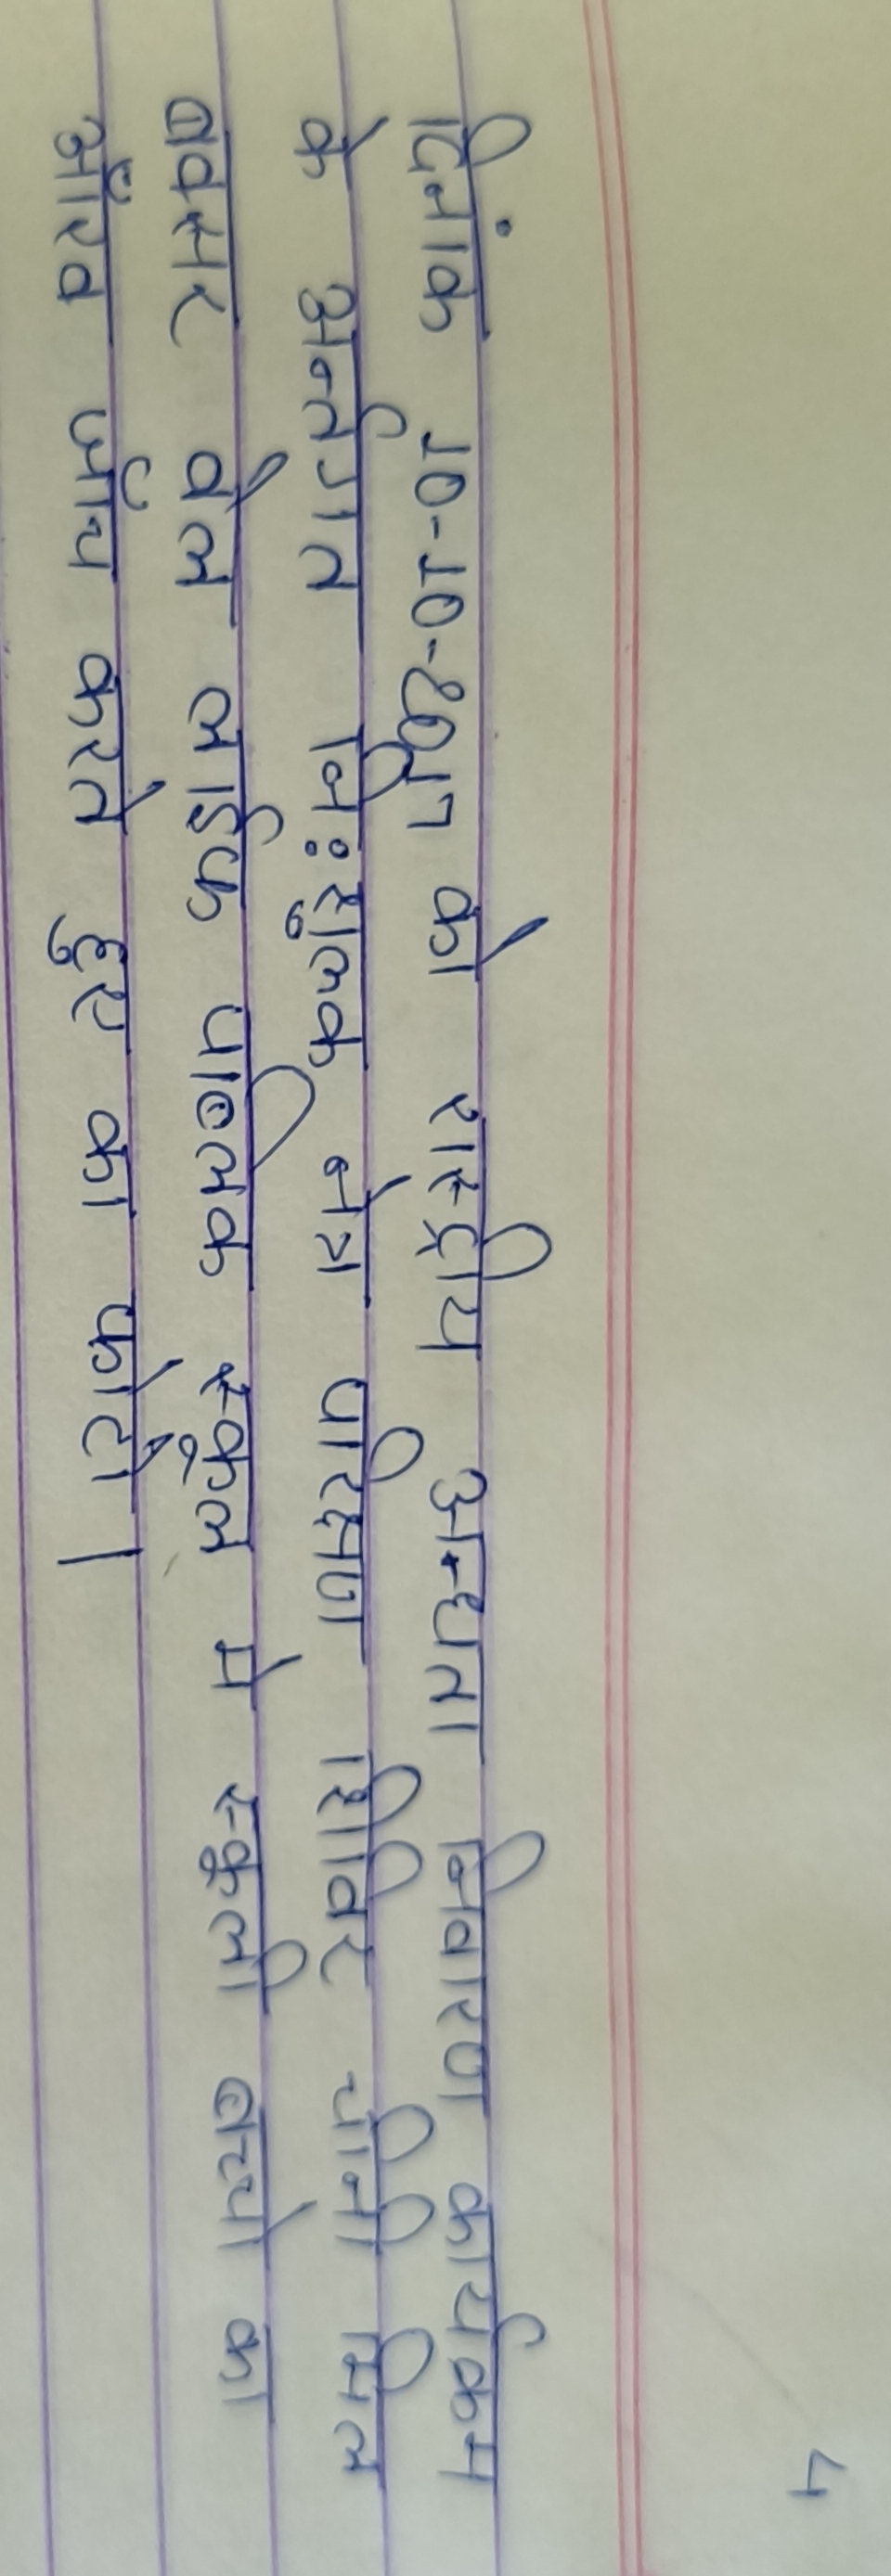 4
दिनांक 10-10-2017 को रास्ट्रीय अन्धता निवारण कार्यक्रम
के अन्तर्गत निःशुल्क नेत्र परिक्षण शिविर चीनी मिल
बक्सर वेल लाईफ पब्लिक स्कूल मे स्कुली बच्चो का
आँख जाँच करते हुए का फोटो।